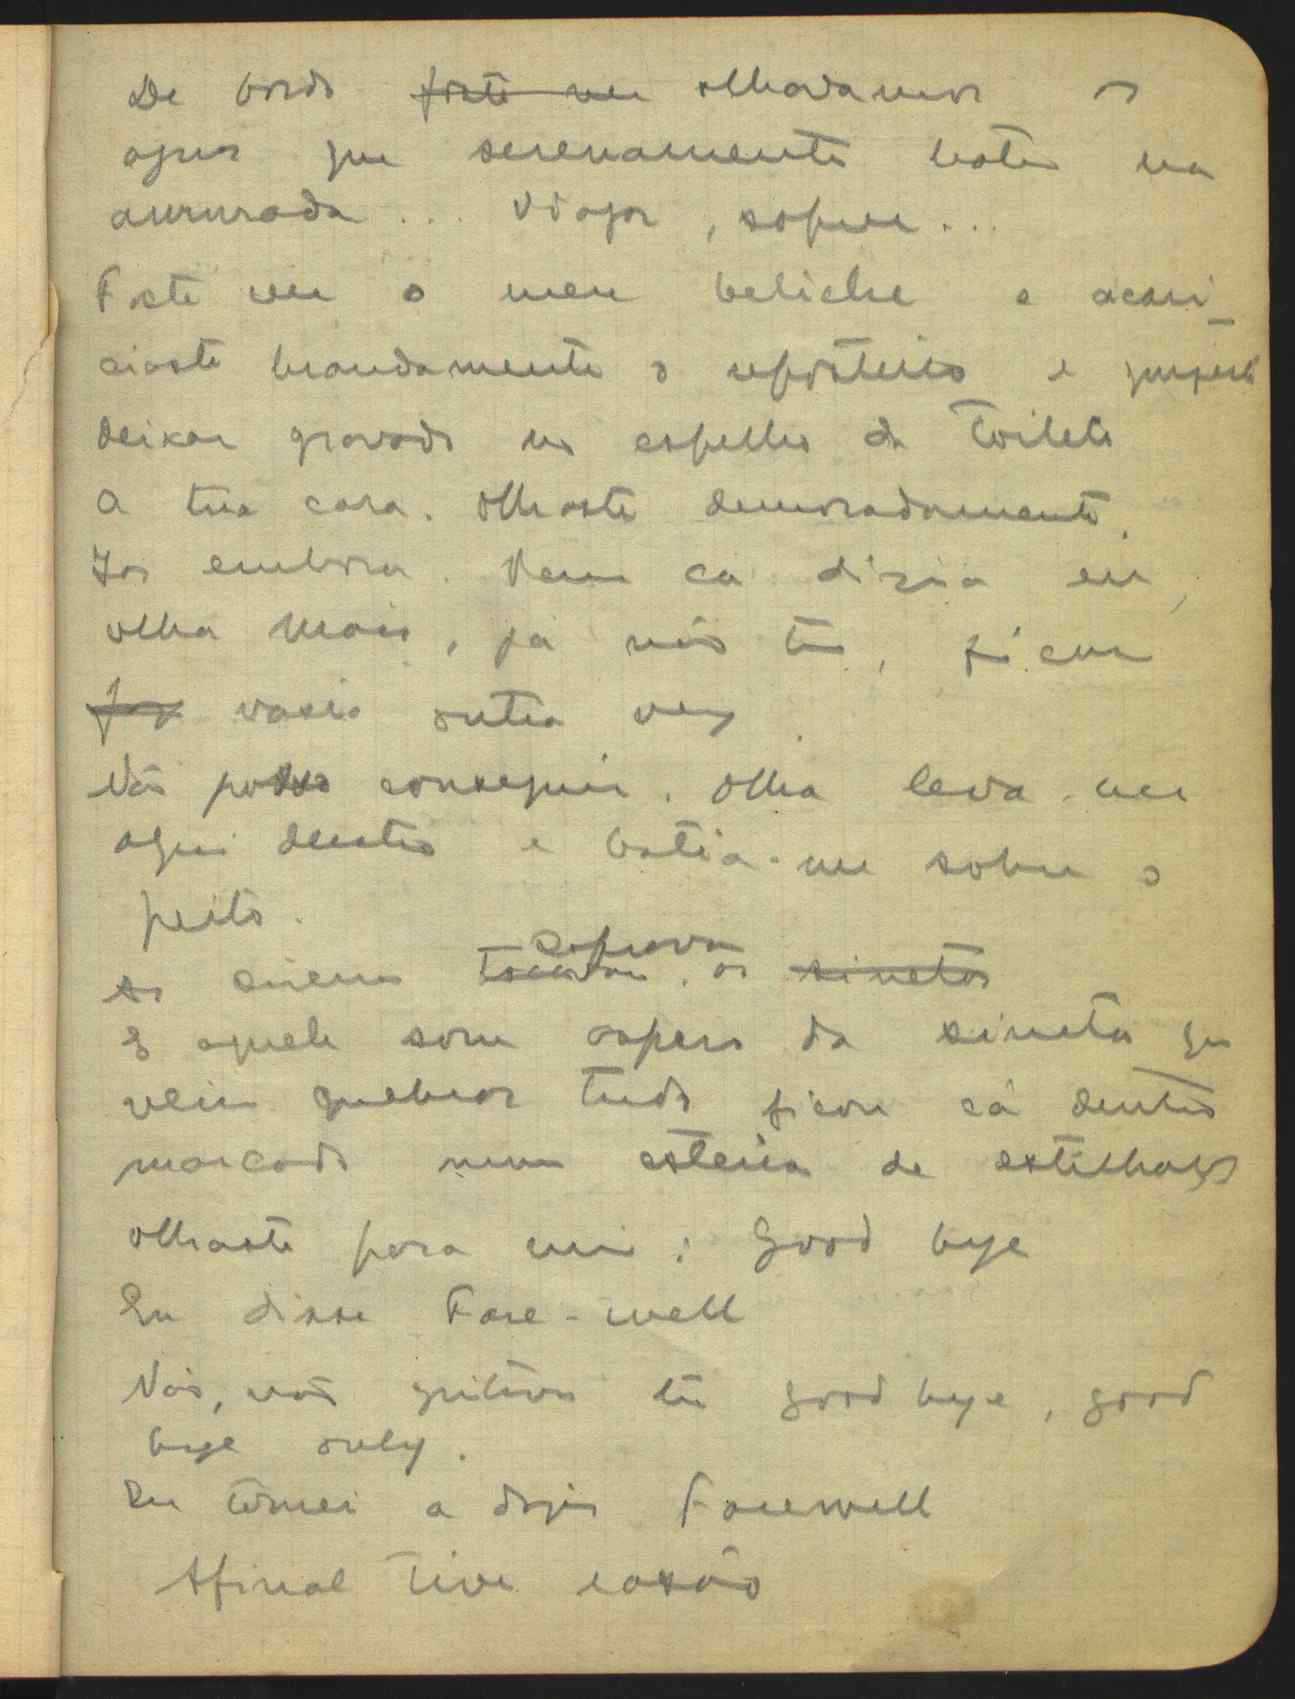 De bordo foste ver olhavamos as
aguas que serenamente batem na
amurada ... Viajar, sofrer...
Foste ver o meu beliche e acari-
ciaste brandamente o reposteiro e quizeste
deixar gravado no espelho da toilete
a tua cara. Olhaste demoradamente.
Ias embora. Vem ca dizia eu,
olha mais, ja não te, ficou
vasio outra vez.
Não posso conseguir. Olha leva-me
aqui dentro e batia-me sobre o
peito.
As sirenes tocavam. as sinetas
E aquele som aspero da sineta que
veiu quebrar tudo ficou cá dentro
marcado numa esteira de estilhaços
Olhaste para mim: Good bye
Eu disse Fare-well
Não, não gritavas tu good bye, good
bye only.
Eu tornei a dizer Farewell
Afinal tive razão